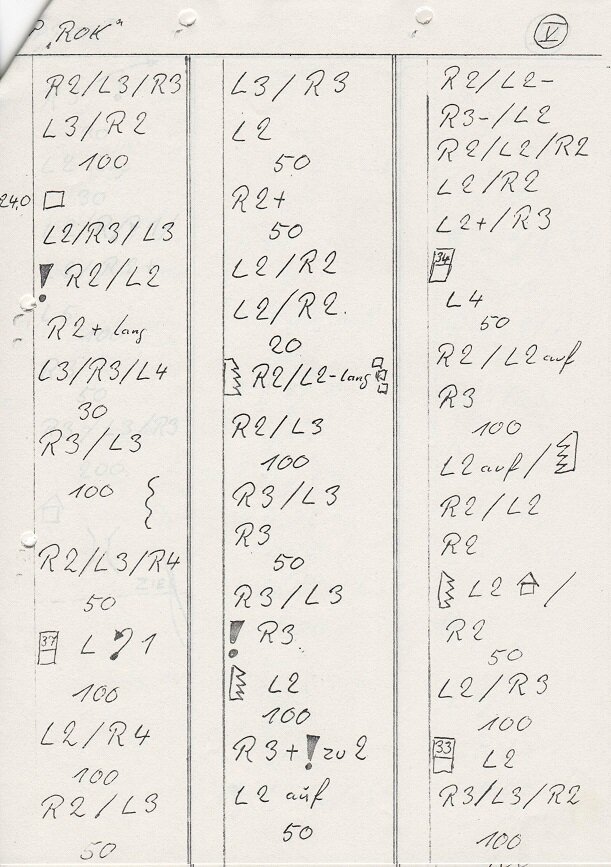 "ROK"
V
R2/L3/R3
L3/R2
100
240
L2/R3/L3
! R2/L2
R2+ lang
L3/R3/L4
30
R3/L3
100
R2/L3/R4
50
37 L 1
100
L2/R4
100
R2/L3
50
L3/R3
L2
50
R2+
50
L2/R2
L2/R2.
20
R2/L2-lang
R2/L3
100
R3/L3
R3
50
R3/L3
! R3
L2
100
R3+! zu 2
L2 auf
50
R2/L2-
R3-/L2
R2/L2/R2
L2/R2
L2+/R3
34
L4
50
R2/L2 auf
R3
100
L2 auf/
R2/L2
R2
L2 /
R2
50
L2/R3
100
33 L2
R3/L3/R2
100